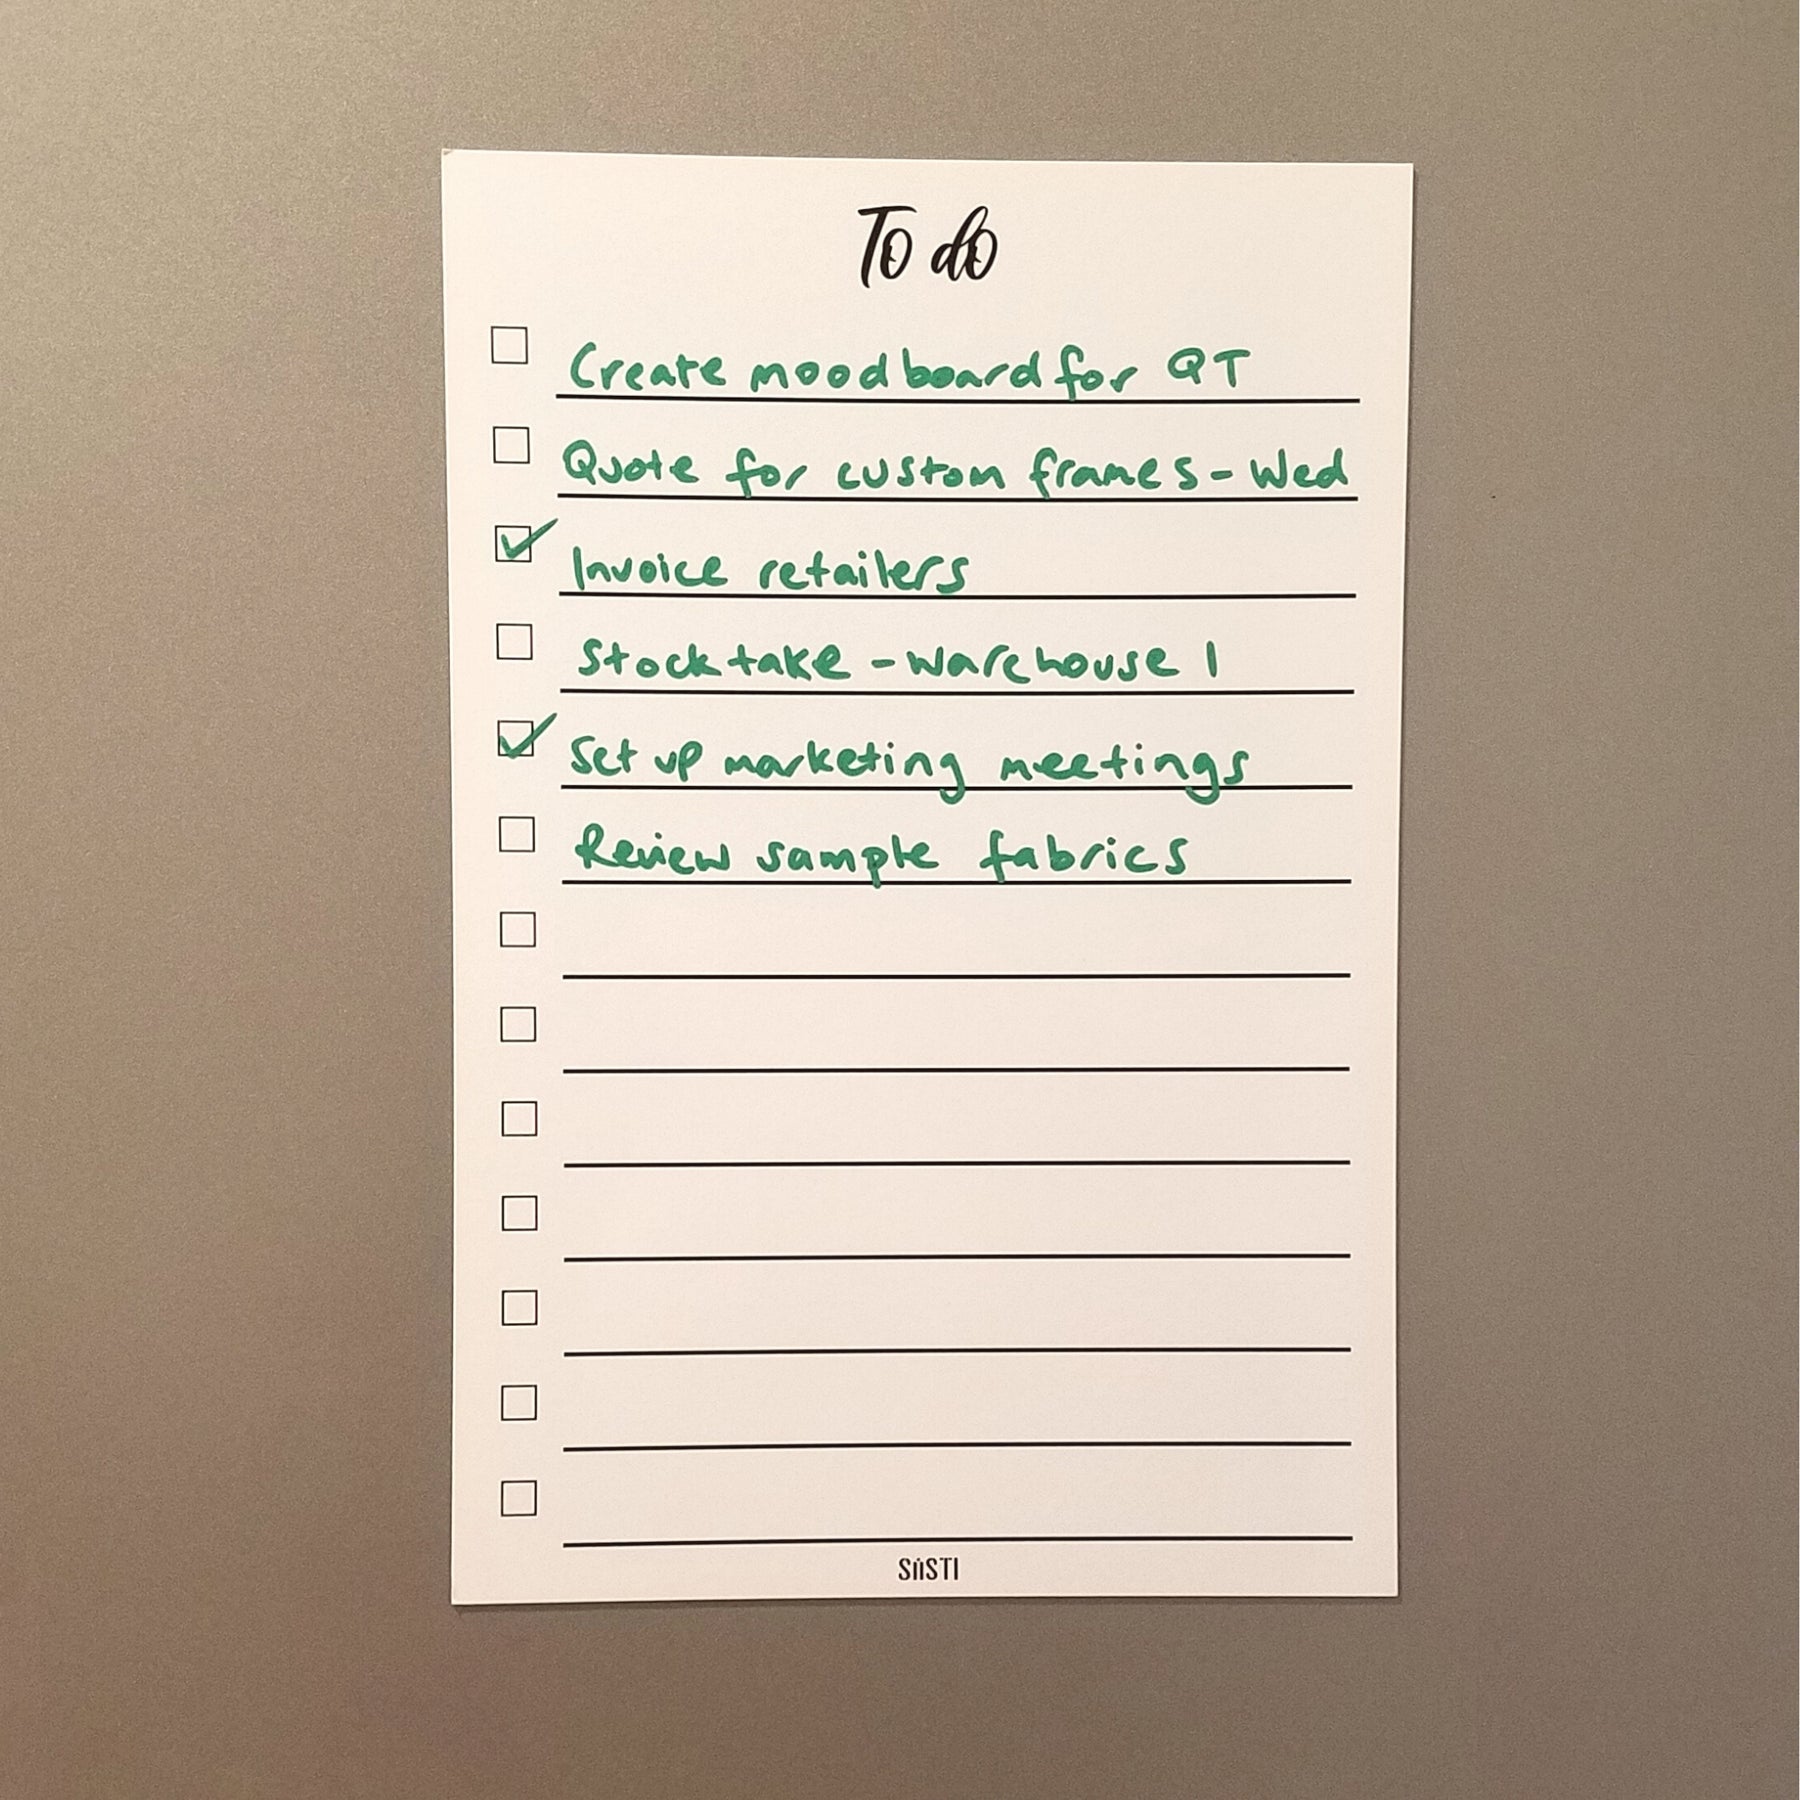 To do
Create moodboard for QT
Quote for custom frames - Wed
Invoice retailers
Stocktake - Warehouse 1
Set up marketing meetings
Review sample fabrics
SıısTI